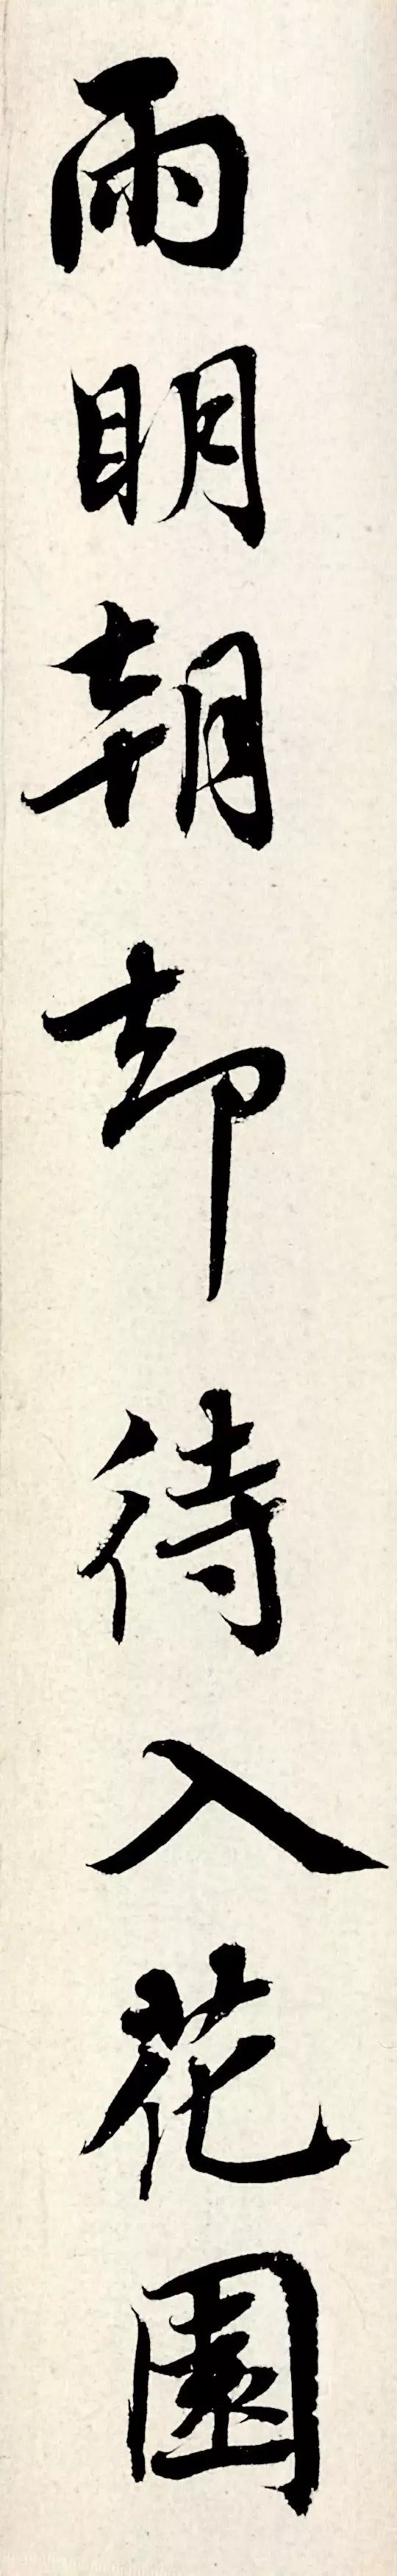 雨明朝却待入花園